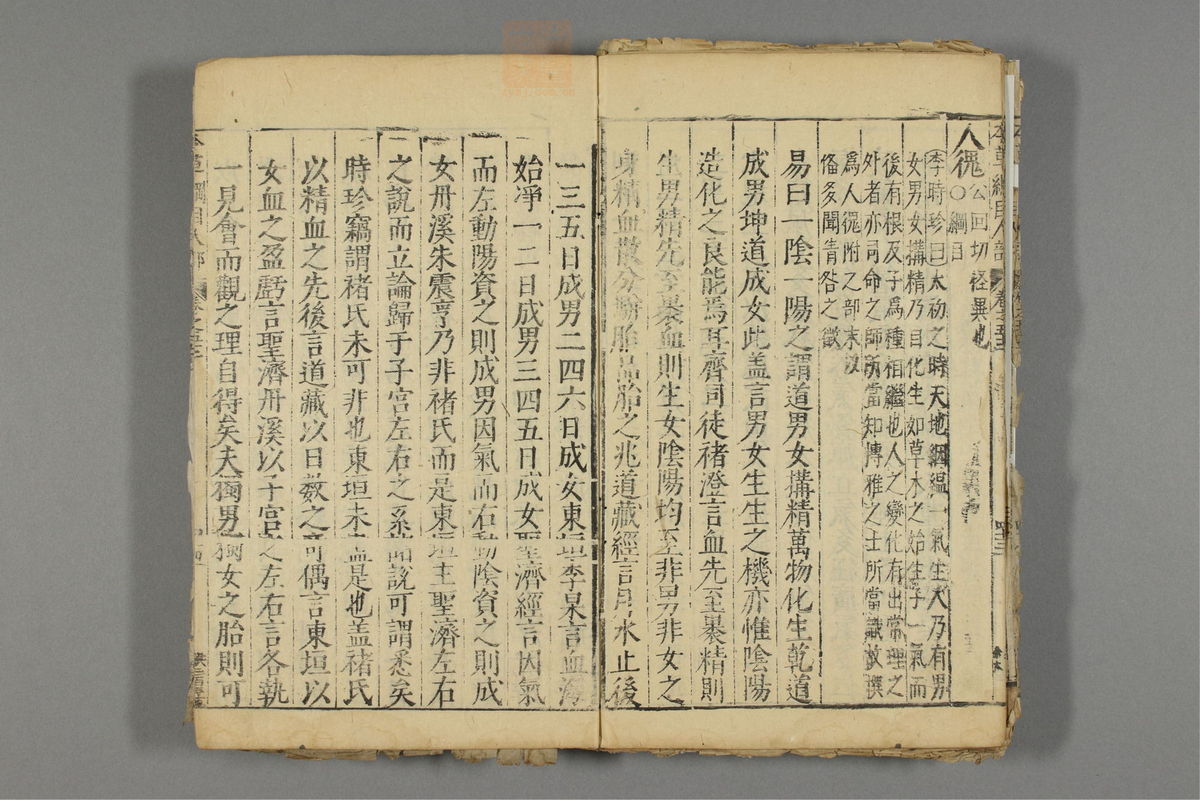 人傀公回切怪異也
○綱目
李時珍曰太初之時天地絪縕一氣生人乃有男
女男女搆精乃自化生如草木之始生子一氣而
後有根及子為種相繼也人之變化有出常理之
外者亦司命之師所當知博雅之士所當識故撰
爲人傀附之部末以
俻多聞眚咎之徵
易曰一陰一陽之謂道男女搆精萬物化生乾道
成男坤道成女此盖言男女生生之機亦惟陰陽
造化之良能焉耳齊司徒褚澄言血先至褁精則
生男精先至褁血則生女陰陽均至非男非女之
身精血散分駢胎品胎之兆道藏經言月水止後
一三五日成男二四六日成女東垣李杲言血海
始凈一二日成男三四五日成女聖濟經言因氣
而左動陽資之則成男因氣而右動陰資之則成
女丹溪朱震亨乃非褚氏而是東垣主聖濟左右
之説而立論歸于子宫左右之系諸説可謂悉矣
時珍竊謂褚氏未可非也東垣未盡是也盖褚氏
以精血之先後言道藏以日數之奇偶言東垣以
女血之盈虧言聖濟丹溪以子宫之左右言各執
一見會而觀之理自得矣夫獨男獨女之胎則可
本草綱目人部